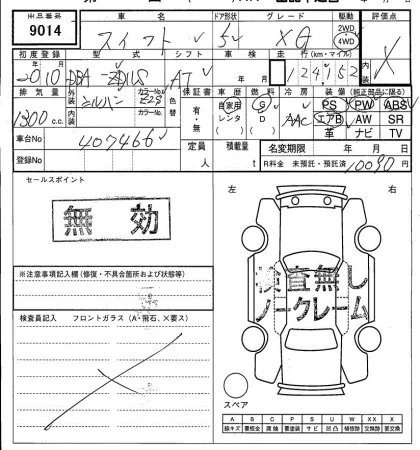 出品番号 車名 ドア形状 グレード 駆動 評価点
9014 スイフト 5 XG 2WD 4WD X
初度登録 型式 シフト 車検 走行(km・マイル)
2010 年 月 DBA- AT 年 月 124152
排気量 外装 カラーNo 色替 保証書 車歴 燃料 冷房 装備(純正部品に限る)
1300 c.c. シルバー Z2S 有・無 自家用 レンタ G D AAC PS PW ABS
内装 カラーNo エアB AW SR
革 ナビ TV
車台No 407466 定員 人 積載量 t 名変期限 年 月 日
登録No R料金 未預託・預託済 10090 円
セールスポイント
無効
左 右
※注意事項記入欄(修復・不具合箇所および状態等)
検査員記入 フロントガラス(A・飛石、X要ス)
検査無し
ノークレーム
スペア
A B C P S U W X XX
線キズ 看板金 腐蝕 要塗装 サビ 凹凸 補修跡 交換跡 要交換